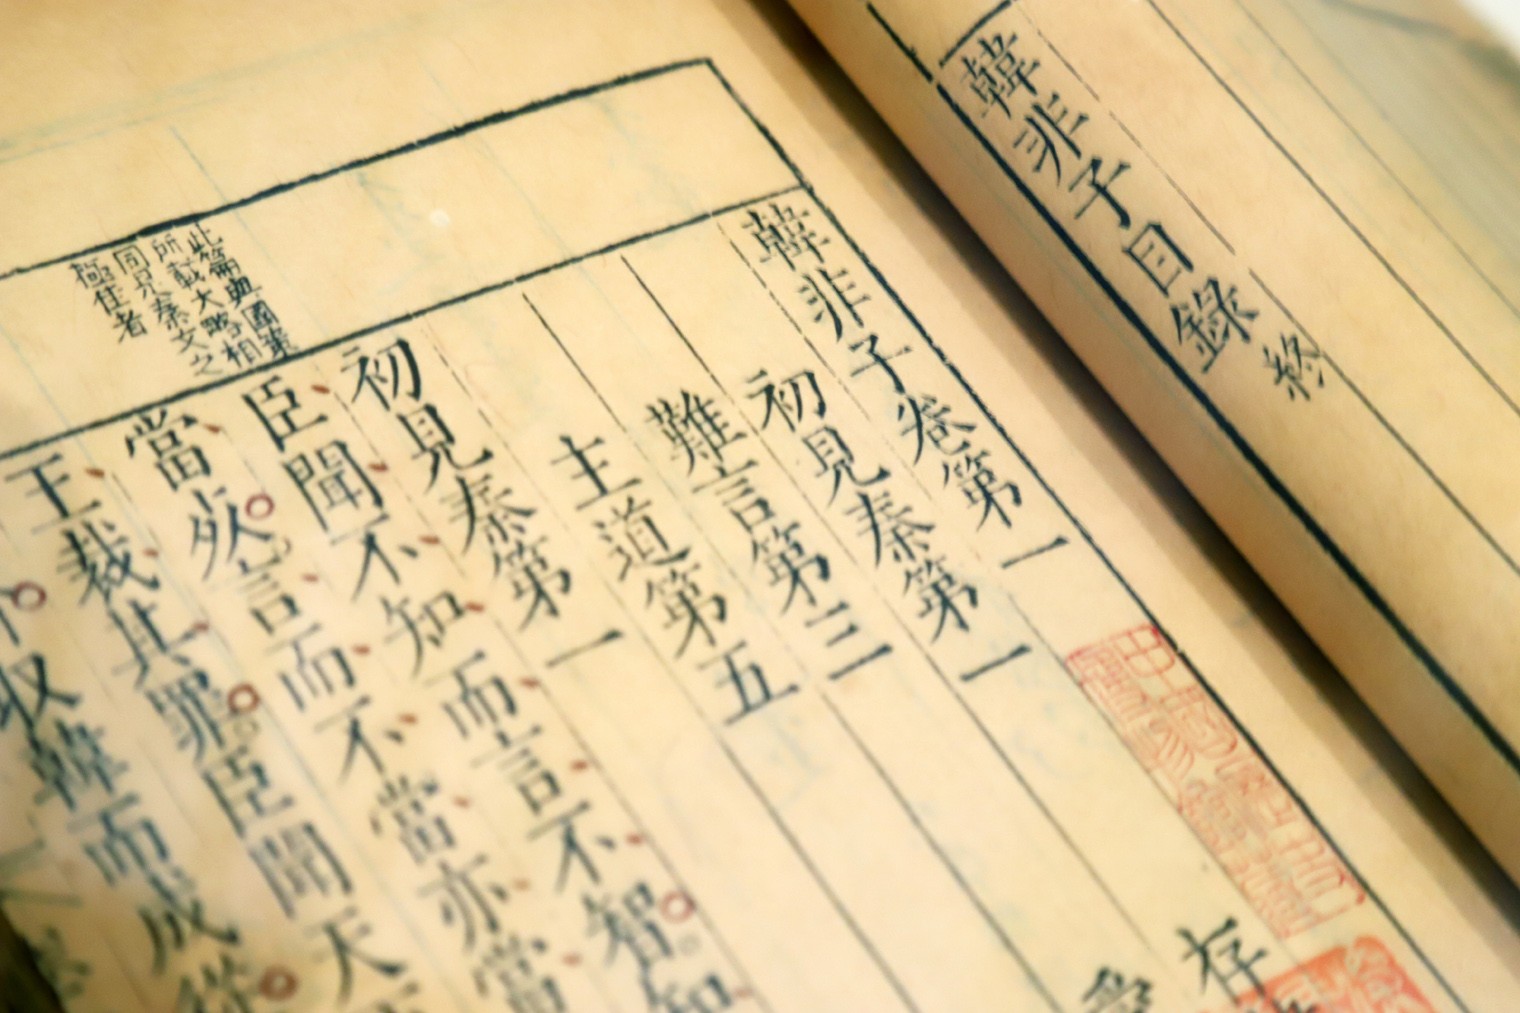 韓非子目錄終
韓非子卷第一
初見秦第一
存
難言第三
愛
主道第五
初見秦第一
臣聞不知而言不智知
當死言而不當亦當
王裁其罪臣聞天
收韓而成從
此篇與國策
所載大略相
同見秦文之
極佳者